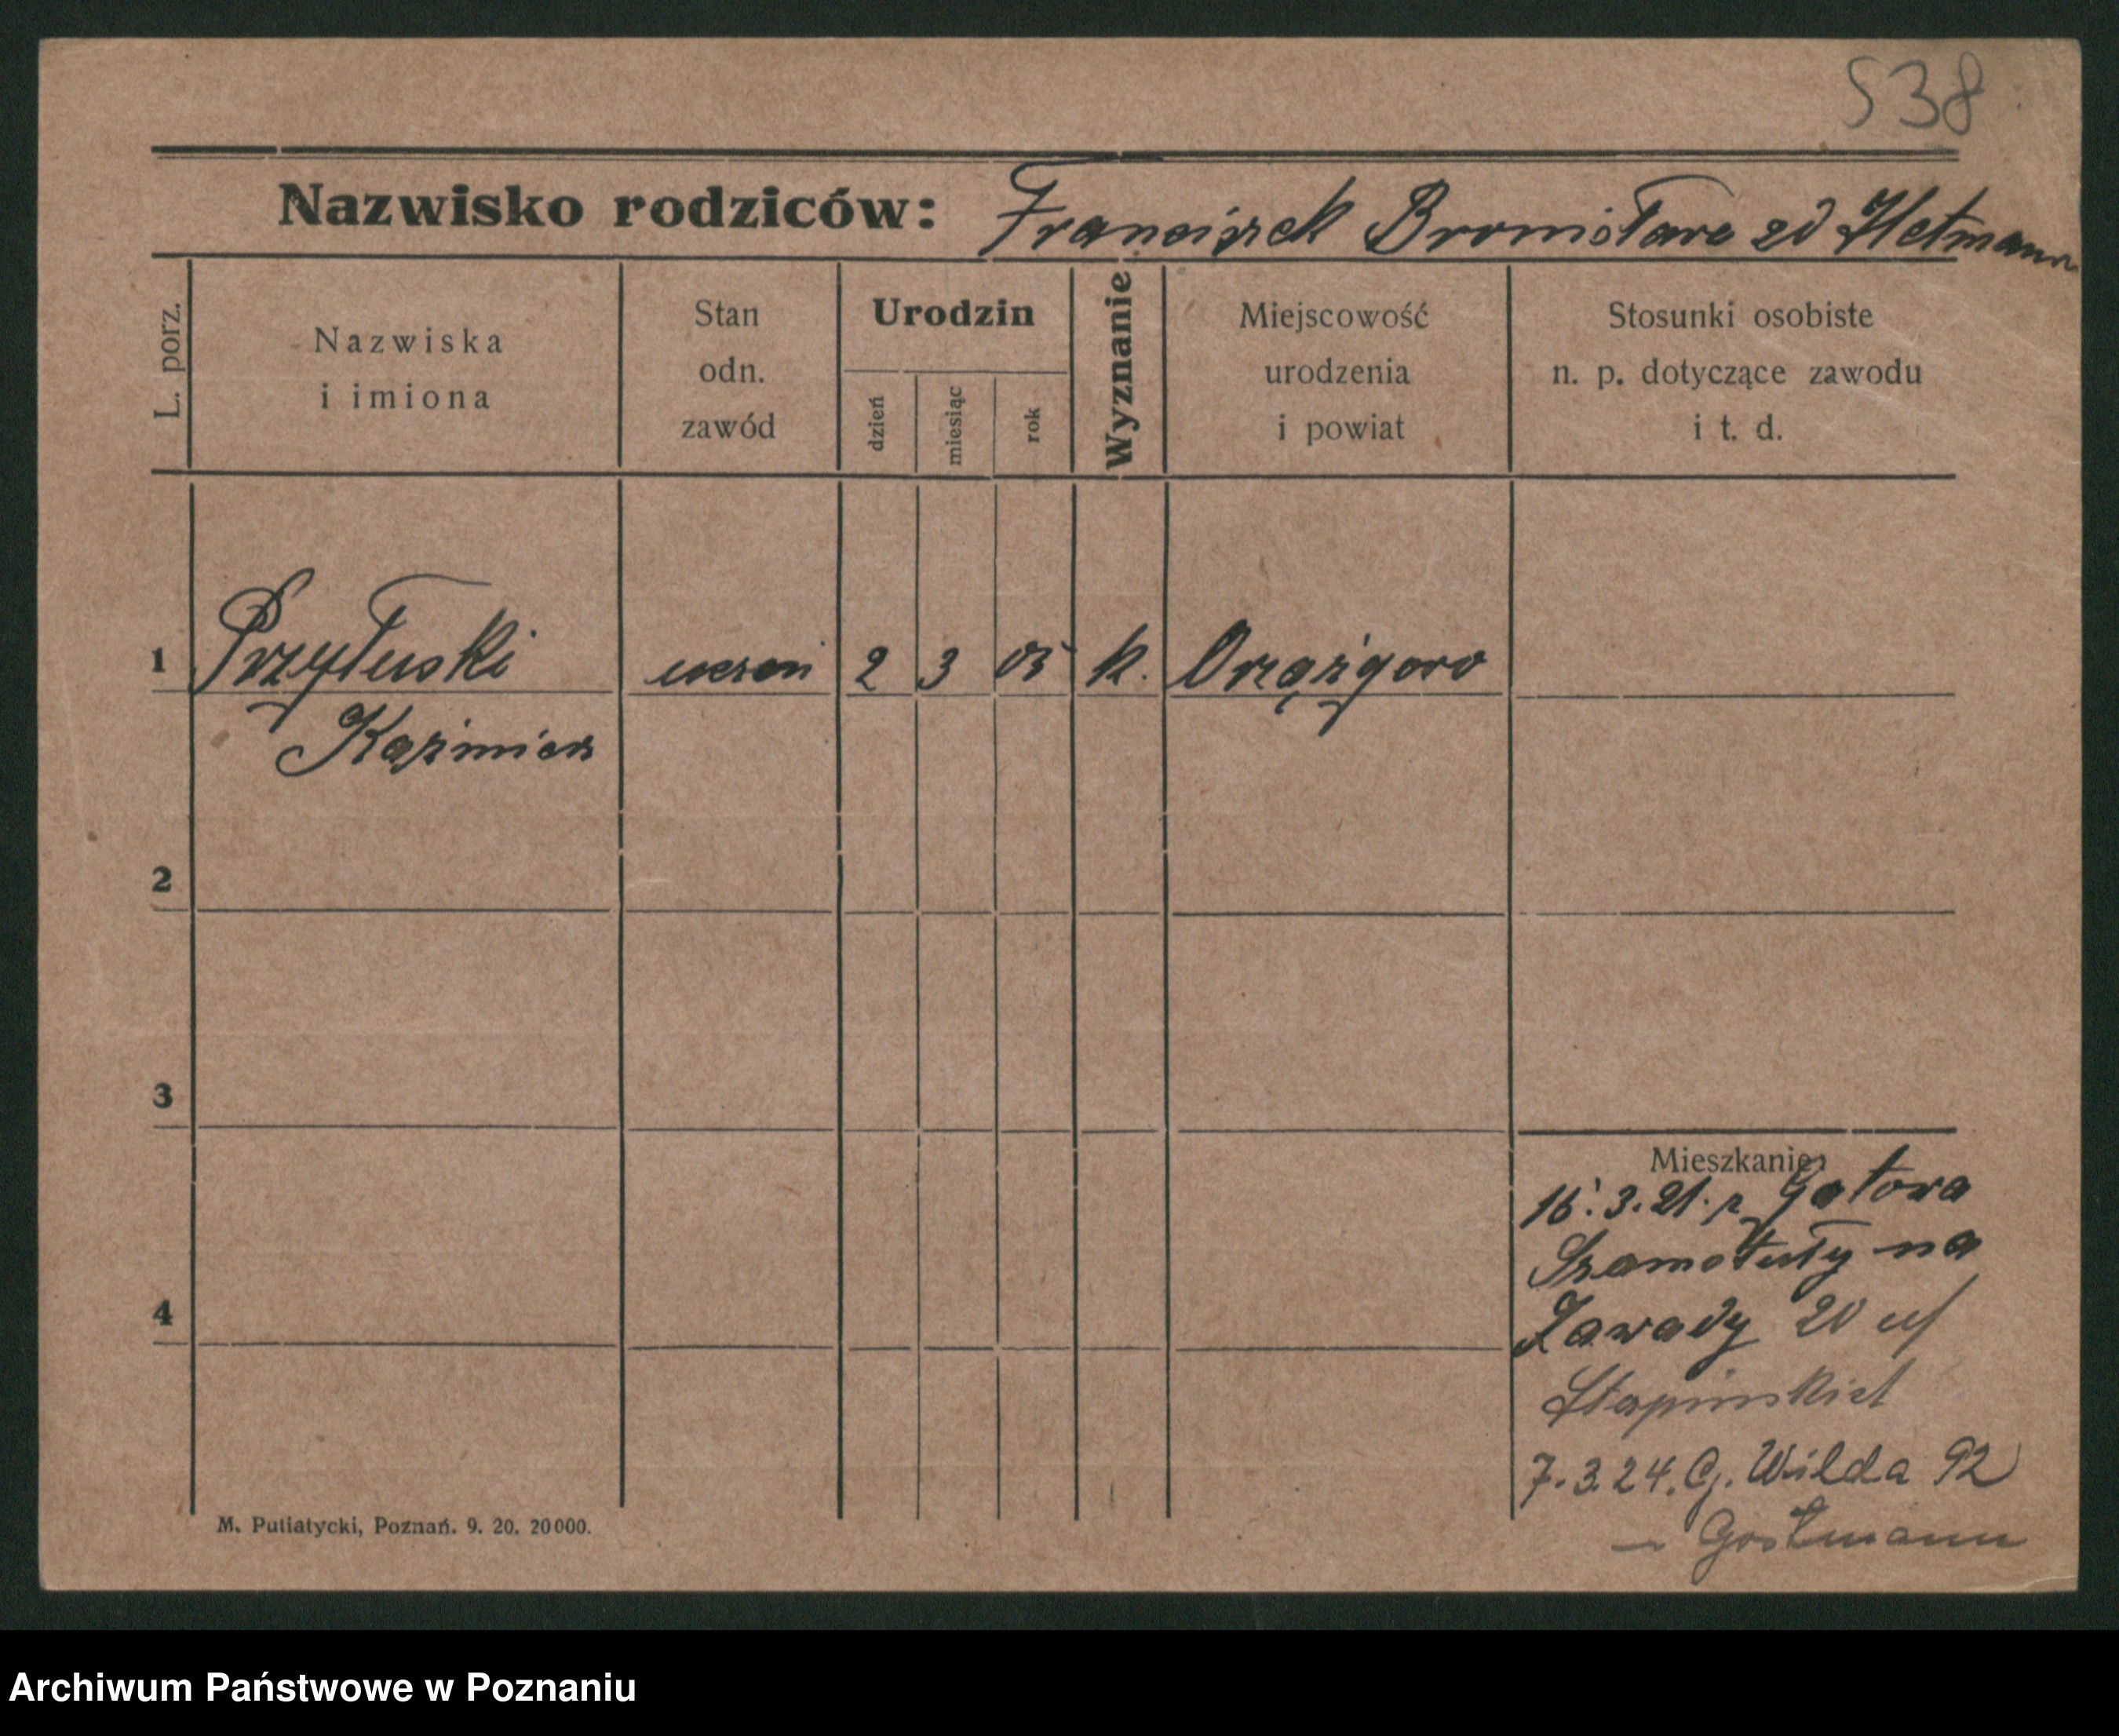 538
Nazwisko rodziców: Franciszek Bronisława zd Hetmann
L. porz.
Nazwiska
i imiona
Stan
odn.
zawód
Urodzin
dzień
miesiąc
rok
Wyznanie
Miejscowość
urodzenia
i powiat
Stosunki osobiste
n. p. dotyczące zawodu
i t. d.
1 Przyłuski uczeń 2 3 05 k.
Kazimierz
2
3
4
Mieszkanie:
16.3.21. z
Szamotuły na
Zawady 20 u/
7.3.24. G. Wilda 92
M. Putiatycki, Poznań. 9. 20. 20000.
Archiwum Państwowe w Poznaniu